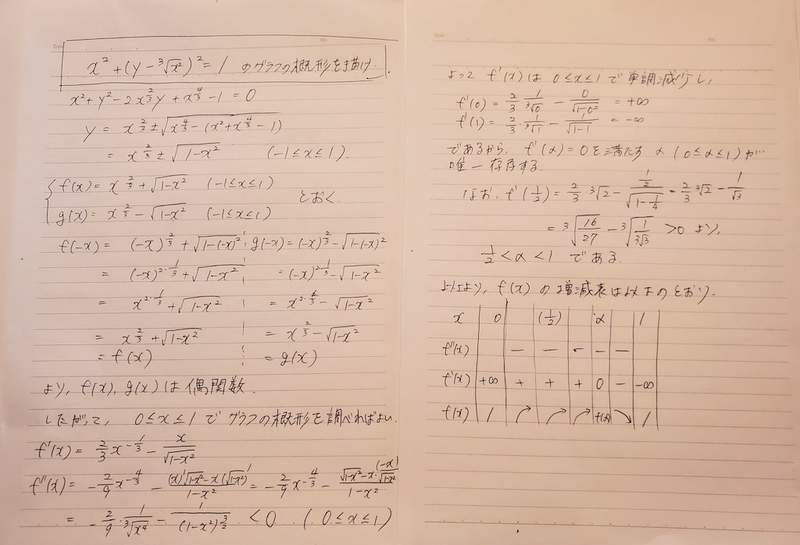 x² + (y - ³√x²)² = 1 のグラフの概形を描け.
x² + y² - 2x^{2/3}y + x^{4/3} - 1 = 0
y = x^{2/3} ± √(x^{4/3} - (x² + x^{4/3} - 1))
= x^{2/3} ± √(1-x²) (-1≤x≤1).
f(x) = x^{2/3} + √(1-x²) (-1≤x≤1)
g(x) = x^{2/3} - √(1-x²) (-1≤x≤1) とおく.
f(-x) = (-x)^{2/3} + √(1-(-x)²) g(-x) = (-x)^{2/3} - √(1-(-x)²)
= (-x)^{2·1/3} + √(1-x²) = (-x)^{2·1/3} - √(1-x²)
= x^{2·1/3} + √(1-x²) = x^{2·1/3} - √(1-x²)
= x^{2/3} + √(1-x²) = x^{2/3} - √(1-x²)
= f(x) = g(x)
より, f(x), g(x) は偶関数.
したがって, 0≤x≤1 でグラフの概形を調べればよい.
f'(x) = 2/3 x^{-1/3} - x/√(1-x²)
f''(x) = -2/9 x^{-4/3} - ((x)'√(1-x²) - x(√(1-x²))')/(1-x²) = -2/9 x^{-4/3} - (√(1-x²) - x·(-x)/√(1-x²))/(1-x²)
= -2/9 · 1/³√x⁴ - 1/(1-x²)^{3/2} < 0 (0≤x≤1)
よって f'(x) は 0≤x≤1 で単調減少し,
f'(0) = 2/3 · 1/³√0 - 0/√(1-0²) = +∞
f'(1) = 2/3 · 1/³√1 - 1/√(1-1) = -∞
であるから, f'(α)=0 を満たす α (0≤α≤1) が
唯一存在する.
なお, f'(1/2) = 2/3 ³√2 - (1/2)/√(1-1/4) = 2/3 ³√2 - 1/√3
= ³√(16/27) - ³√(1/(3√3)) > 0 より,
1/2 < α < 1 である.
以上より, f(x) の増減表は以下のとおり.
x 0 (1/2) α 1
f''(x) - - - - -
f'(x) +∞ + + + 0 - -∞
f(x) 1 ↗ ↗ ↗ f(α) ↘ 1